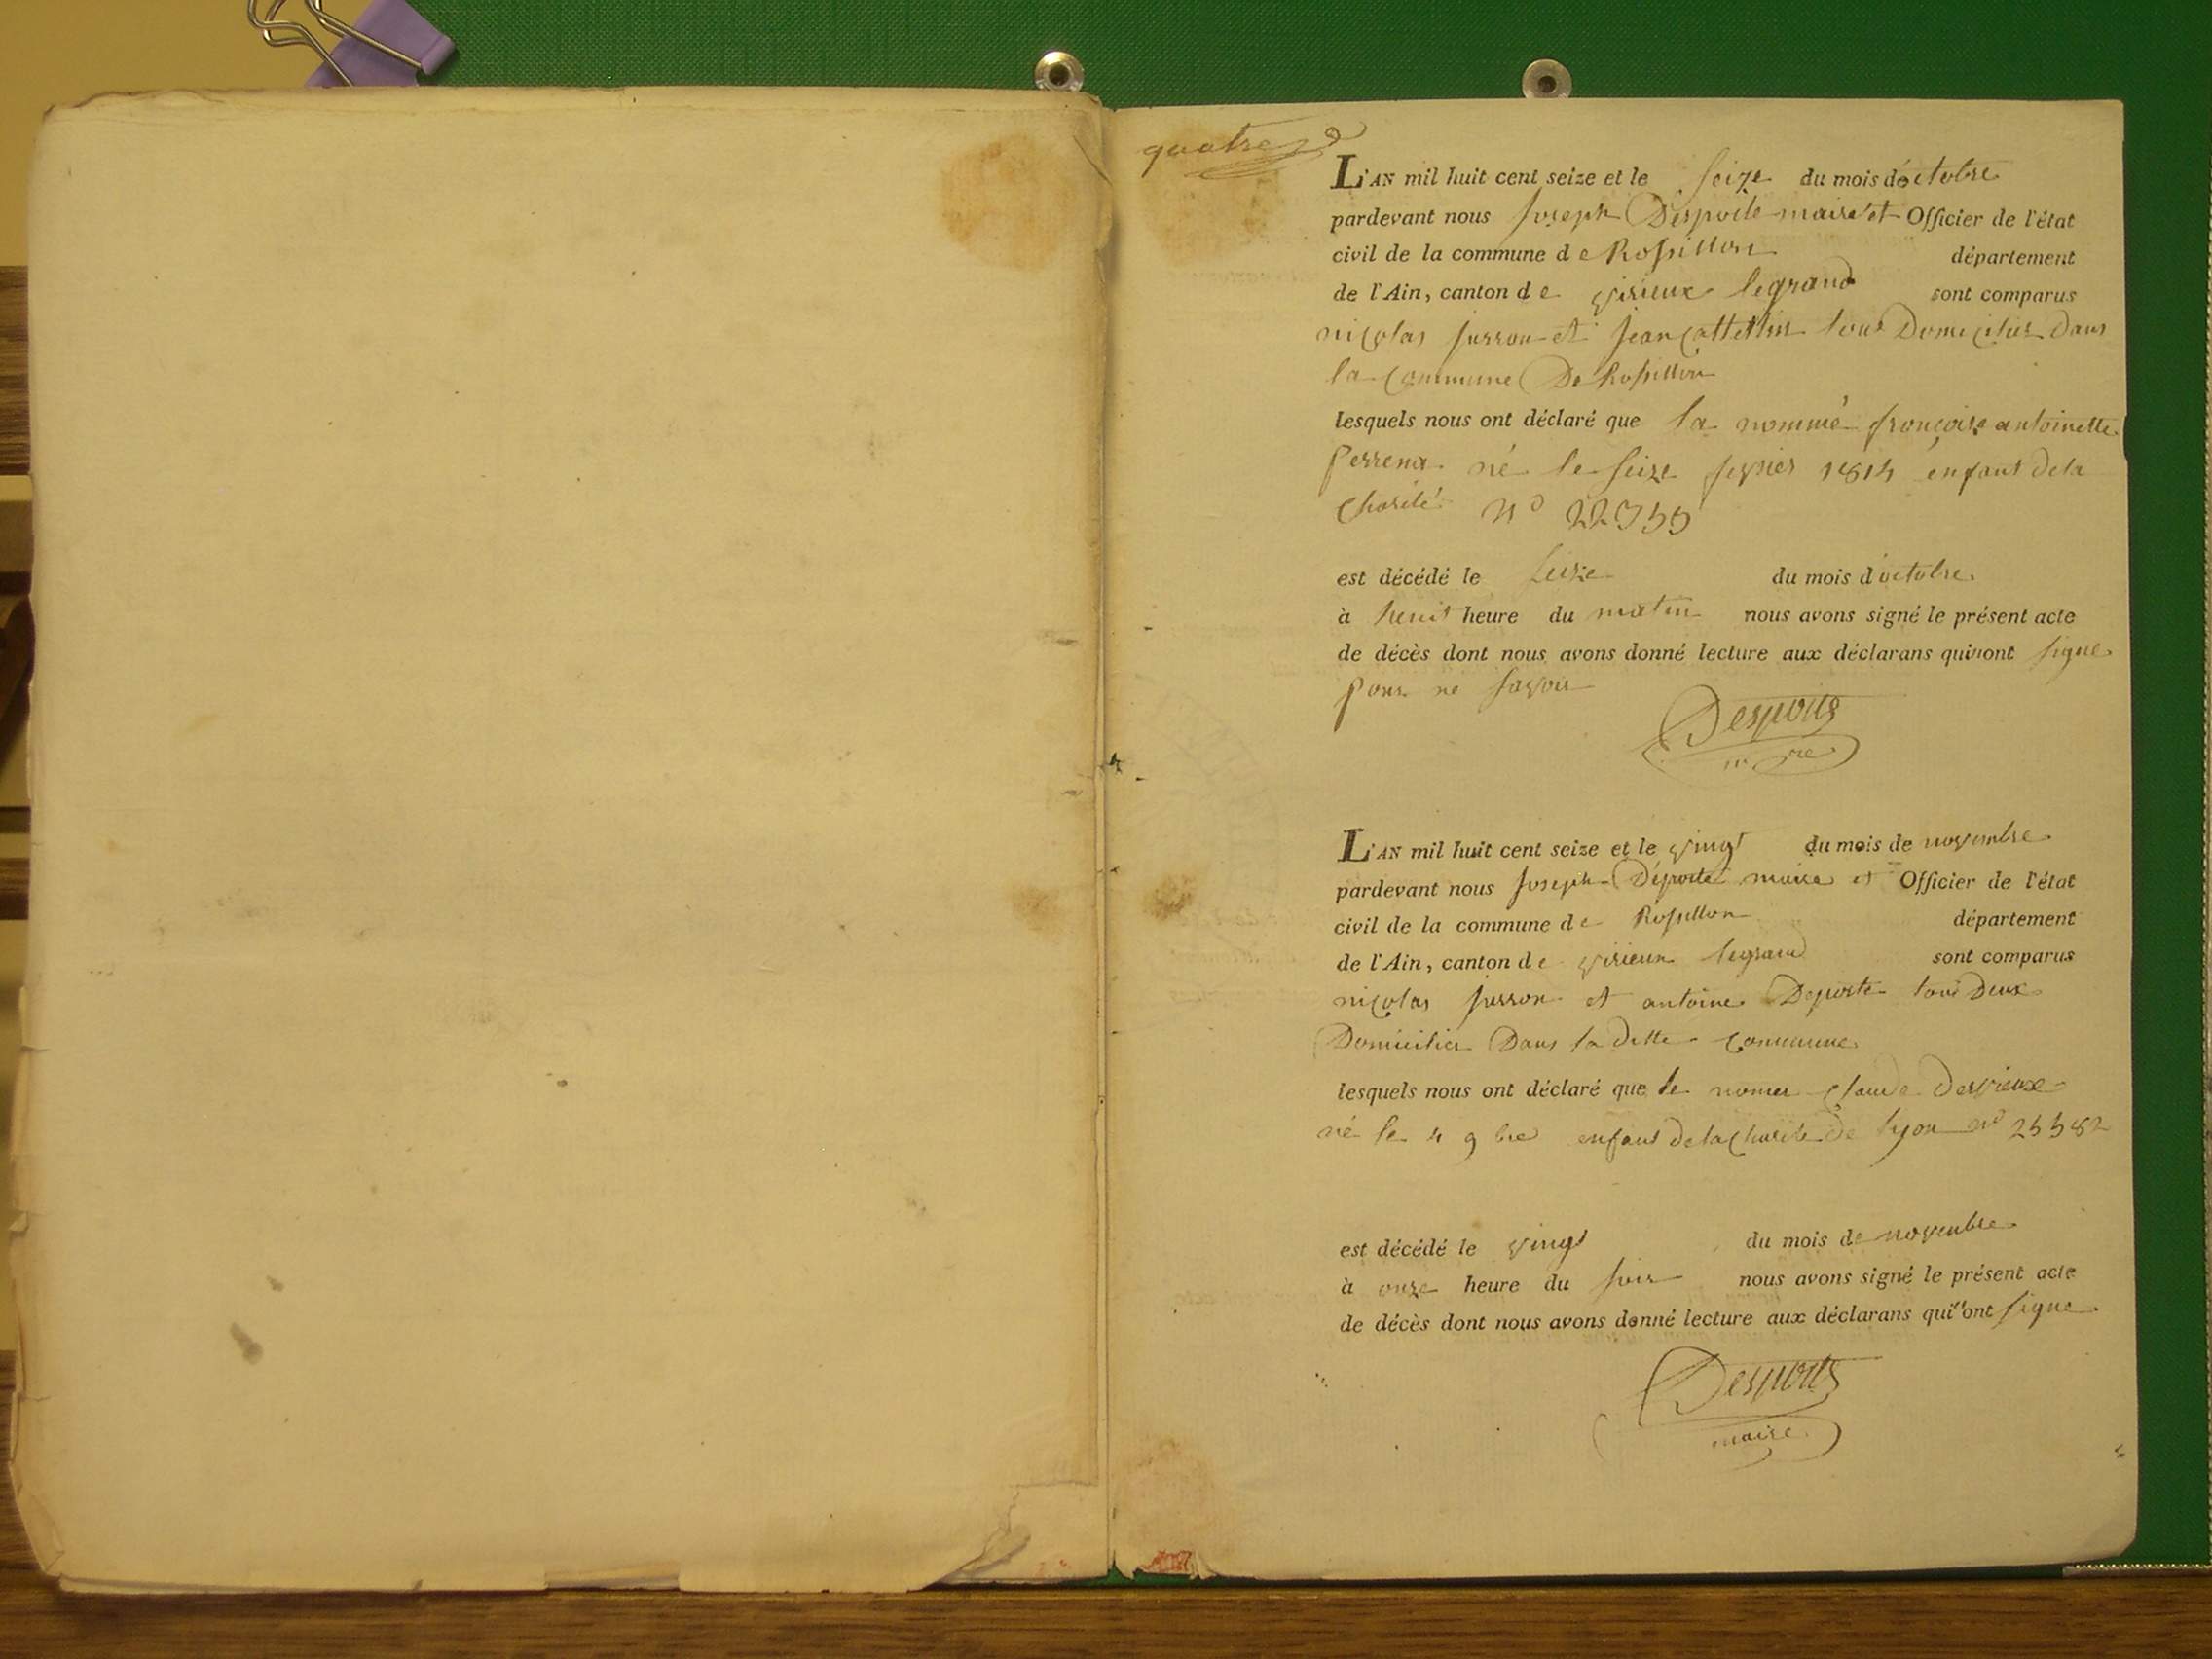 quatre
L'AN mil huit cent seize et le seize du mois d'octobre
pardevant nous Joseph Desporte maire et Officier de l'état
civil de la commune de Rossillon département
de l'Ain, canton de virieux legrand sont comparus
nicolas Jusson et Jean Cattellin tous Domicilies Dans
la Commune De Rossillon
lesquels nous ont déclaré que la nommé françoise antoinette
perrena né le seize fevrier 1814 enfant de la
Charité N°
est décédé le seize du mois d'octobre
à heuit heure du matin nous avons signé le présent acte
de décès dont nous avons donné lecture aux déclarans qui n'ont signe
pour ne savoir
Desporte
maire
L'AN mil huit cent seize et le vingt du mois de novembre
pardevant nous Joseph Déporte maire et Officier de l'état
civil de la commune de Rossillon département
de l'Ain, canton de virieux legrand sont comparus
nicolas Jusson et antoine Deporte tous Deux
Domicilier Dans la ditte Commune
lesquels nous ont déclaré que le nomer Claude Dervieux
né le 4 9bre enfant de la Charité de lyon n° 25582
est décédé le vingt du mois de novembre
à onze heure du soir nous avons signé le présent acte
de décès dont nous avons donné lecture aux déclarans qui ont signe
Desporte
maire